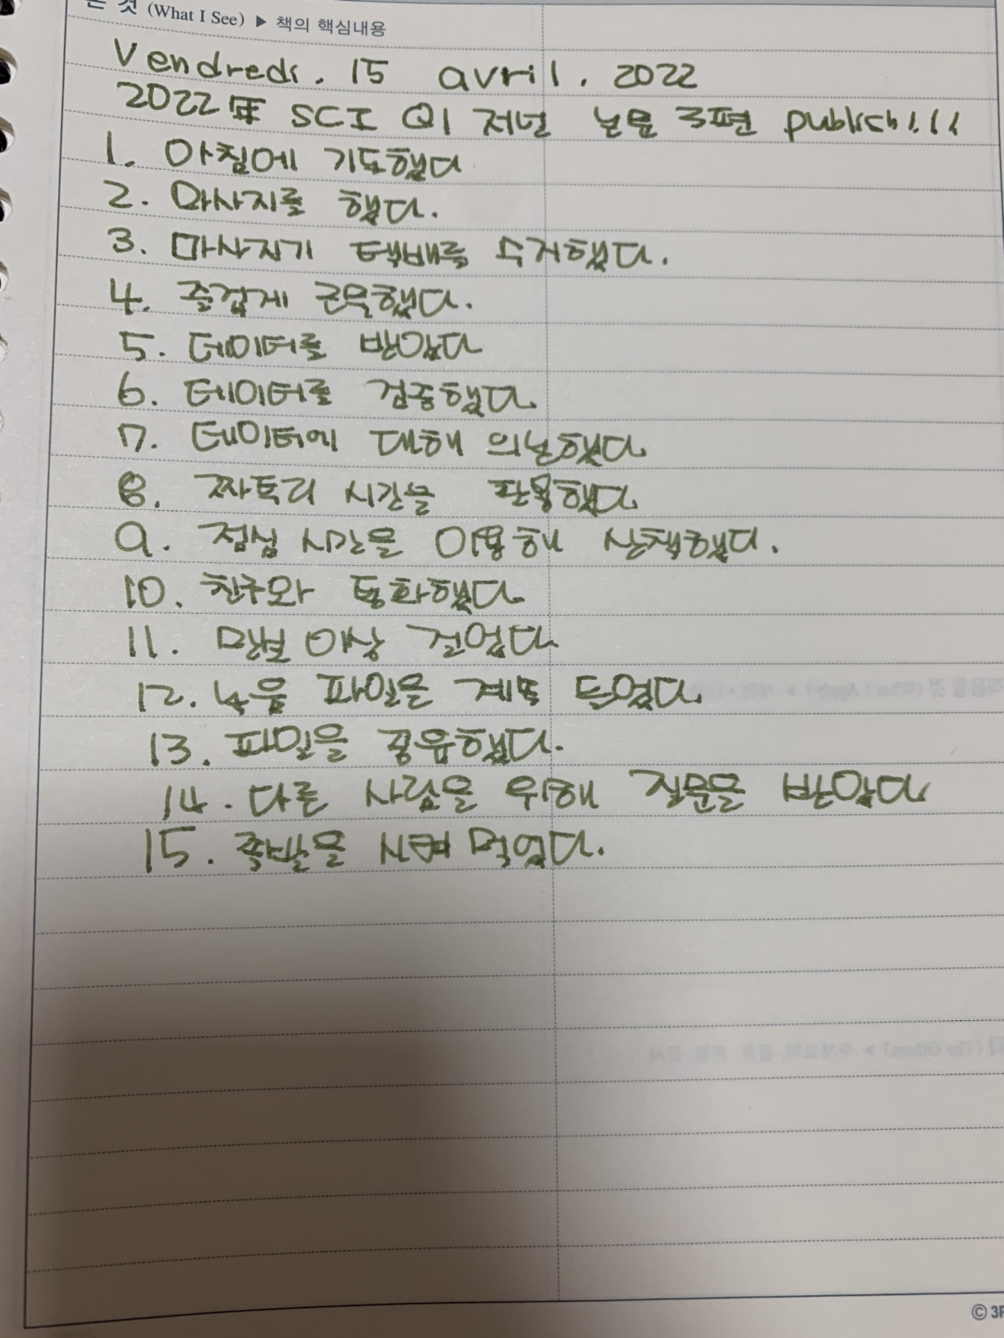 것 (What I See) ▶ 책의 핵심내용
Vendredi. 15 avril. 2022
2022年 SCI Q1 저널 논문 3편 publish!!!
1. 아침에 기도했다
2. 마사지를 했다.
3. 마사지기 택배를 수거했다.
4. 즐겁게 근무했다.
5. 데이터를 받았다
6. 데이터를 검증했다.
7. 데이터에 대해 의논했다.
8. 짜투리 시간을 활용했다.
9. 점심 시간을 이용해 산책했다.
10. 친구와 통화했다.
11. 만보 이상 걸었다.
12. 녹음 파일을 계속 들었다.
13. 파일을 공유했다.
14. 다른 사람을 위해 질문을 받았다
15. 족발을 시켜 먹었다.
© 3P